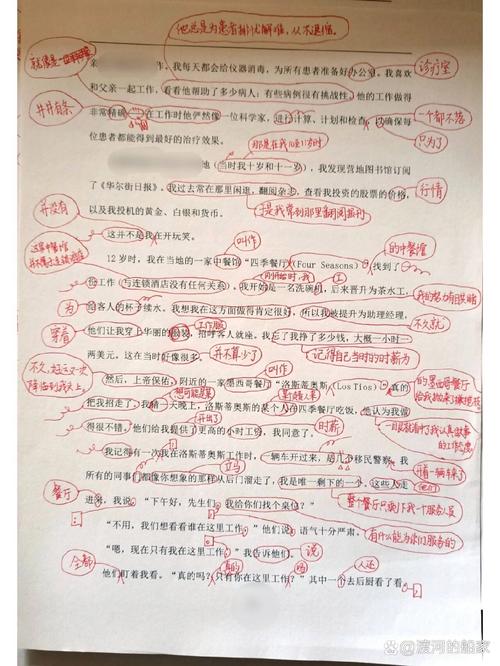 他总是为患者排忧解难，从不退缩。
就像是
亲 作，我每天都会给仪器消毒，为所有患者准备好办公室。我喜欢
诊疗室
和父亲一起工作，看看他帮助了多少病人；有些病例很有挑战性。他的工作做得
井井有条
一个都不落
非常精确 在工作时他俨然像一位科学家，进行计算、计划和检查，以确保每
只为了
位患者都能得到最好的治疗效果。
那是在我10到11岁时
地（当时我十岁和十一岁），我发现营地图书馆订阅
了《华尔街日报》。我过去常在那里闲逛，翻阅杂志，查看我投资的股票的价格，
行情
并没有
以及我投机的黄金、白银和货币。
于是我常到那里翻阅报刊
这并不是我在开玩笑。
叫作
的中餐馆
这家中餐馆
12 岁时，我在当地的一家中餐馆“四季餐厅”（Four Seasons） 找到了
刚开始时，我
份工作（与连锁酒店没有任何关系）。我开始是一名洗碗机，后来晋升为茶水工，
为
给客人的杯子续水。我想我在这方面做得肯定很好，所以我被提升为助理经理，
不久就
穿着
工作服
他们让我穿上华丽的服装，招呼客人就座。我忘了我挣了多少钱，大概一小时一
两美元，这在当时好像很多。
并不算少了
记得自己当时的时薪为
不久，
降临到我头上。
叫作
然后，上帝保佑，附近的一家墨西哥餐厅“洛斯蒂奥斯”（Los Tios） 真的
的墨西哥餐厅
把我招走了。我猜一天晚上，洛斯蒂奥斯的某个人在四季餐厅吃饭，他认为我做
开出了
时薪
得很不错。他们给我提供了更高的小时工资，我同意了。
我记得有一次我在洛斯蒂奥斯工作时，一辆车开过来，是几个移民警察。我
立马
开着一辆车来了
所有的同事们都像你想象的那样从后门溜走了，我是唯一剩下的一个，这些人走
他们
餐厅
整个餐厅只剩下我一个服务员
进来，我说：“下午好，先生们。我给你们找个桌位？”
有什么能为你们服务的
“不用，我们想看看谁在这里工作。”他们说，语气十分严肃。
“嗯，现在只有我在这里工作。”我告诉他们。
说
全都
真的
吗
人还
他们盯着我看。“真的吗？只有你在这里工作？”其中一个去后厨看了看。
@渡河的船家